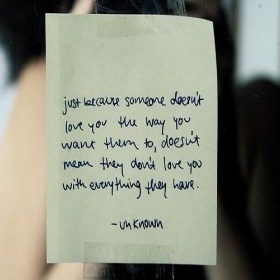 just because someone doesn't
love you the way you
want them to, doesn't
mean they don't love you
with everything they have.
-unknown